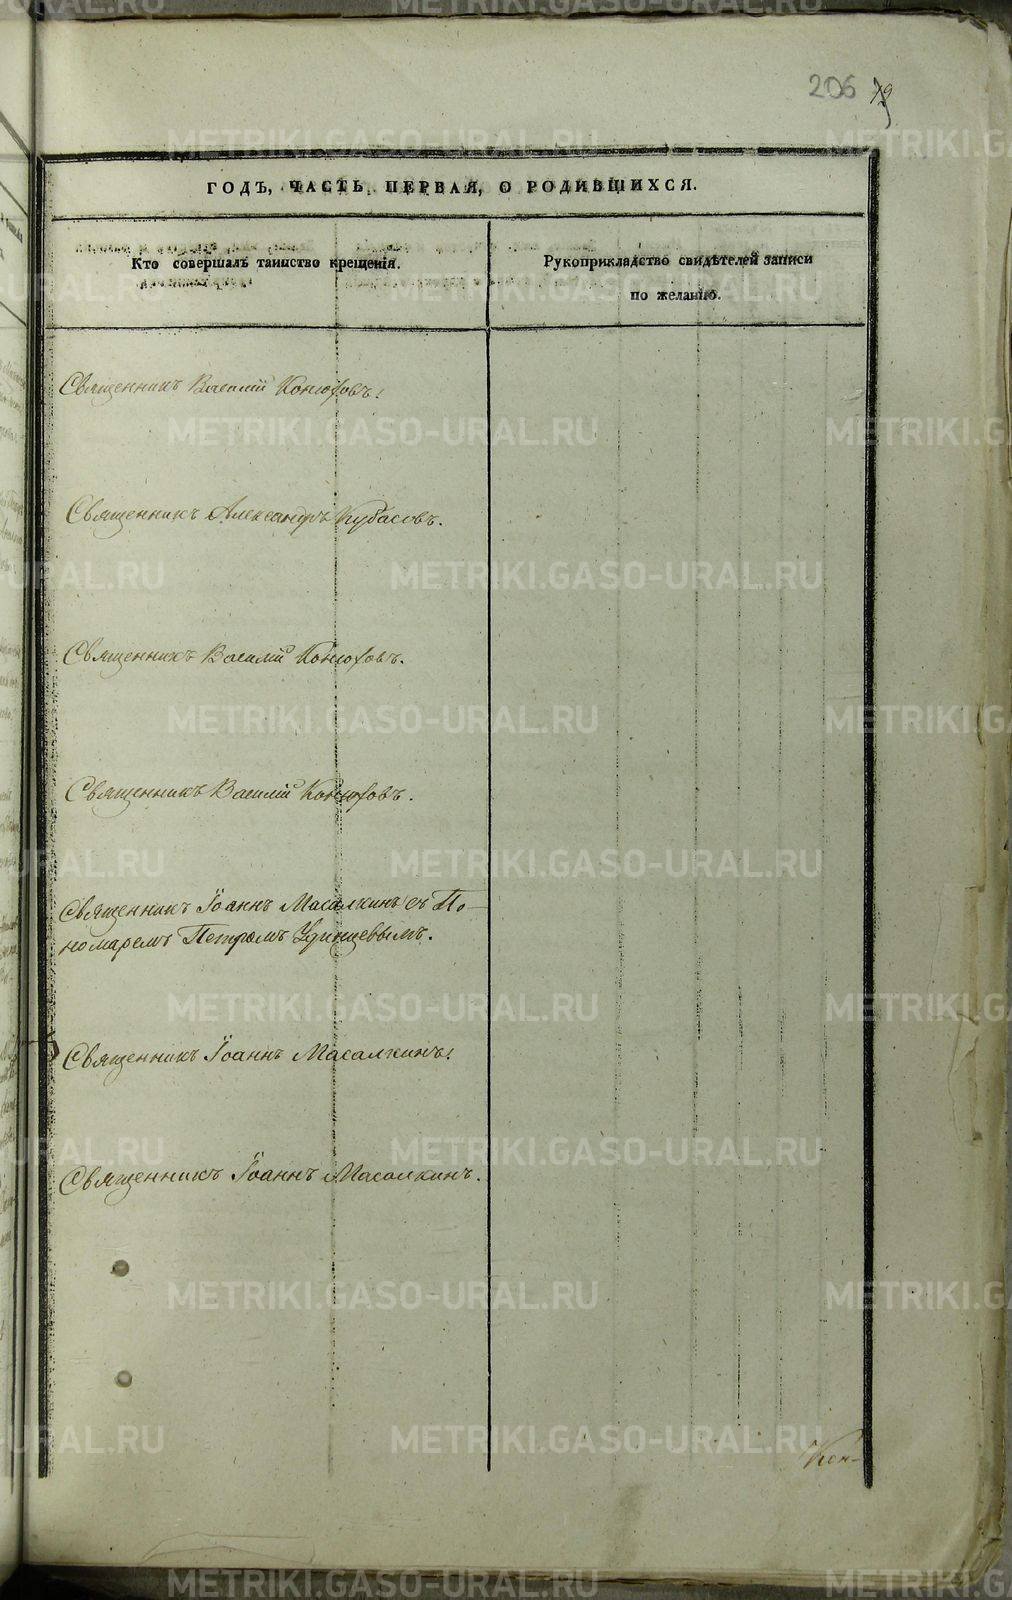 206 79
ГОДЪ, ЧАСТЬ ПЕРВАЯ, О РОДИВШИХСЯ.
Кто совершалъ таинство крещенія.
Рукоприкладство свидѣтелей записи
по желанію.
Священникъ Василій Конюховъ.
Священникъ Александръ Кубасовъ.
Священникъ Василій Конюховъ.
Священникъ Василій Конюховъ.
Священникъ Іоаннъ Масалкинъ съ По-
номаремъ Петромъ Удинцевымъ.
Священникъ Іоаннъ Масалкинъ.
Священникъ Іоаннъ Масалкинъ.
METRIKI.GASO-URAL.RU